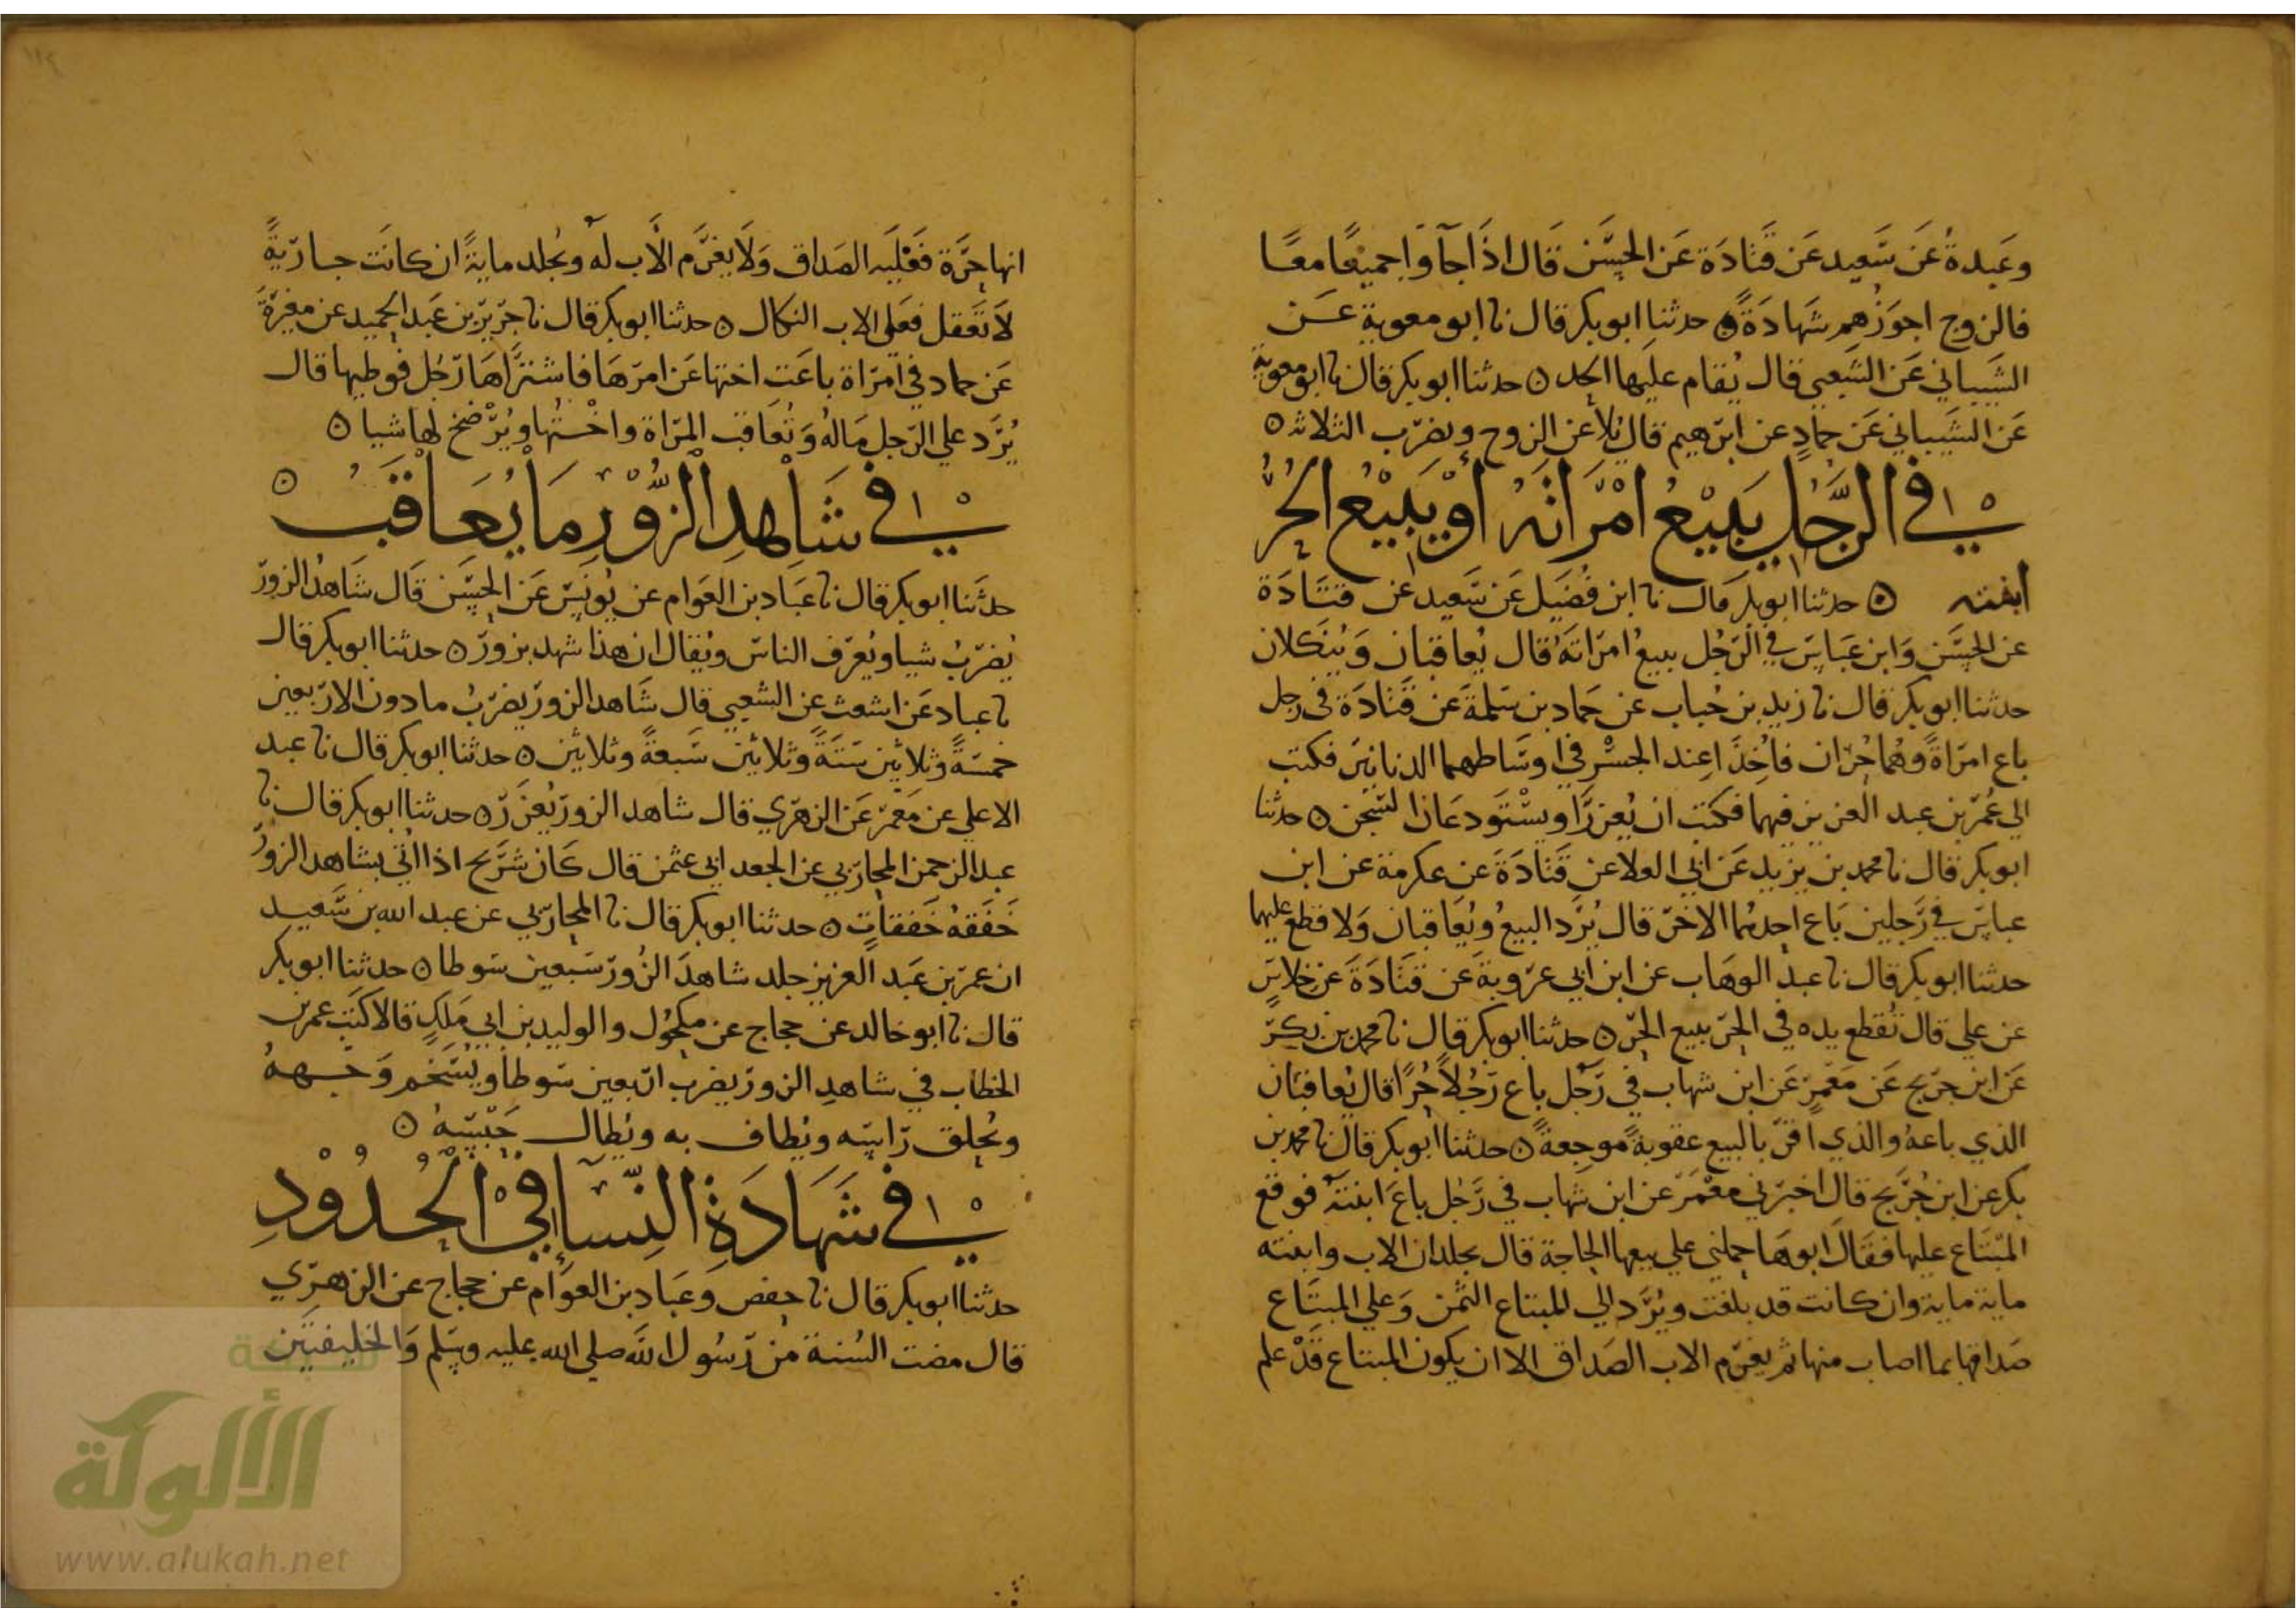 وعبدة عن سعيد عن قتادة عن الحسن قال اذا جاوا جميعا معا
فالزوج اجوزهم شهادة ٥ حدثنا ابو بكر قال نا ابو معوية عن
الشيباني عن الشعبي قال يقام عليها الحد ٥ حدثنا ابو بكر قال نا ابو معوية
عن الشيباني عن حماد عن ابرهيم قال يلاعن الزوج ويضرب الثلاثة ٥
في الرجل يبيع امراته او يبيع الحر
ابنته ٥ حدثنا ابو بكر قال نا ابن فضيل عن سعيد عن قتادة
عن الحسن وابن عباس في الرجل يبيع امراته قال يعاقبان وينكلان
حدثنا ابو بكر قال نا زيد بن حباب عن حماد بن سلمة عن قتادة في رجل
باع امراة وهما حران فاخذا عند الجسر في اوساطهما الدنانير فكتب
الي عمر بن عبد العزيز فيهما فكتب ان يعزرا ويستودعان السجن ٥ حدثنا
ابو بكر قال نا محمد بن يزيد عن ابي العلا عن قتادة عن عكرمة عن ابن
عباس في رجلين باع احدهما الاخر قال يرد البيع ويعاقبان ولا قطع عليهما
حدثنا ابو بكر قال نا عبد الوهاب عن ابن ابي عروبة عن قتادة عن خلاس
عن علي قال تقطع يده في الحر يبيع الحر ٥ حدثنا ابو بكر قال نا محمد بن بكر
عن ابن جريج عن معمر عن ابن شهاب في رجل باع رجلا حرا قال يعاقبان
الذي باعه والذي اقر بالبيع عقوبة موجعة ٥ حدثنا ابو بكر قال نا محمد بن
بكر عن ابن جريج قال اخبرني معمر عن ابن شهاب في رجل باع ابنته فوقع
المبتاع عليها فقال ابوها حملني علي بيعها الحاجة قال يجلدان الاب وابنته
ماية ماية وان كانت قد بلغت ويرد الي المبتاع الثمن وعلي المبتاع
صداقها بما اصاب منها ثم يغرم الاب الصداق الا ان يكون المبتاع قد علم
انها حرة فعليه الصداق ولا يغرم الاب له ويجلد ماية ان كانت جارية
لا تعقل فعلي الاب النكال ٥ حدثنا ابو بكر قال نا جرير بن عبد الحميد عن مغيرة
عن حماد في امراة باعت اختها عن امرها فاشتراها رجل فوطيها قال
يرد علي الرجل ماله وتعاقب المراة واختها ويرضخ لها شيا ٥
في شاهد الزور ما يعاقب ٥
حدثنا ابو بكر قال نا عباد بن العوام عن يونس عن الحسن قال شاهد الزور
يضرب شيا ويعرف الناس ويقال ان هذا شهد بزور ٥ حدثنا ابو بكر قال
نا عباد عن اشعث عن الشعبي قال شاهد الزور يضرب ما دون الاربعين
خمسة وثلاثين ستة وثلاثين سبعة وثلاثين ٥ حدثنا ابو بكر قال نا عبد
الاعلي عن معمر عن الزهري قال شاهد الزور يعزر ٥ حدثنا ابو بكر قال نا
عبد الرحمن المحاربي عن الجعد ابي عثمن قال كان شريح اذا اتي بشاهد الزور
خفقه خفقات ٥ حدثنا ابو بكر قال نا المحاربي عن عبد الله بن سعيد
ان عمر بن عبد العزيز جلد شاهد الزور سبعين سوطا ٥ حدثنا ابو بكر
قال نا ابو خالد عن حجاج عن مكحول والوليد بن ابي ملك قالا كتب عمر بن
الخطاب في شاهد الزور يضرب اربعين سوطا ويسخم وجهه
ويحلق راسه ويطاف به ويطال حبسه ٥
في شهادة النسا في الحدود
حدثنا ابو بكر قال نا حفص وعباد بن العوام عن حجاج عن الزهري
قال مضت السنة من رسول الله صلي الله عليه وسلم والخليفتين
شبكة
الألوكة
www.alukah.net